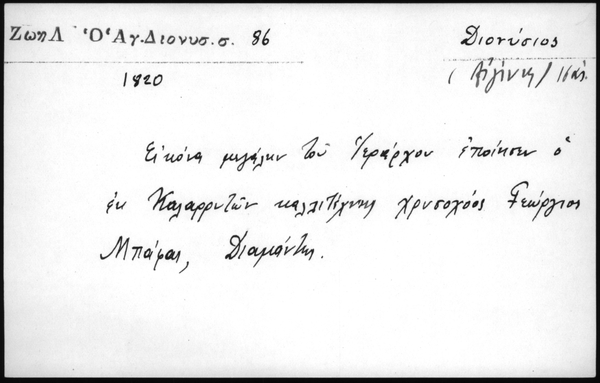 ΖωηΛ Ὁ Ἁγ. Διονυσ. σ. 86
Διονύσιος
1820
(Αἰγίνης) 16 αἰ.
Εἰκόνα μεγάλην τοῦ Ἱεράρχου ἐποίησεν ὁ
ἐκ Καλαρρυτῶν καλλιτέχνης χρυσοχόος Γεώργιος
Μπάφας, Διαμάντης.